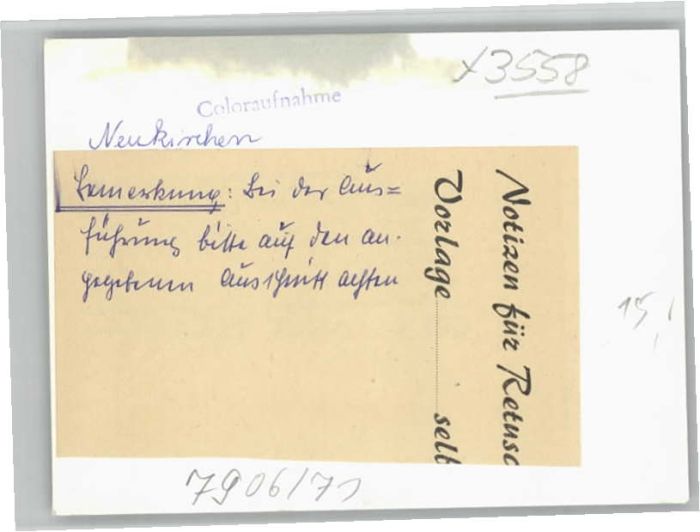 x3558
Coloraufnahme
Neukirchen
Bemerkung: Bei der Aus=
führung bitte auf den an-
gegebenen Ausschnitt achten
Notizen für Retusc
Vorlage selb
15,
7906/71